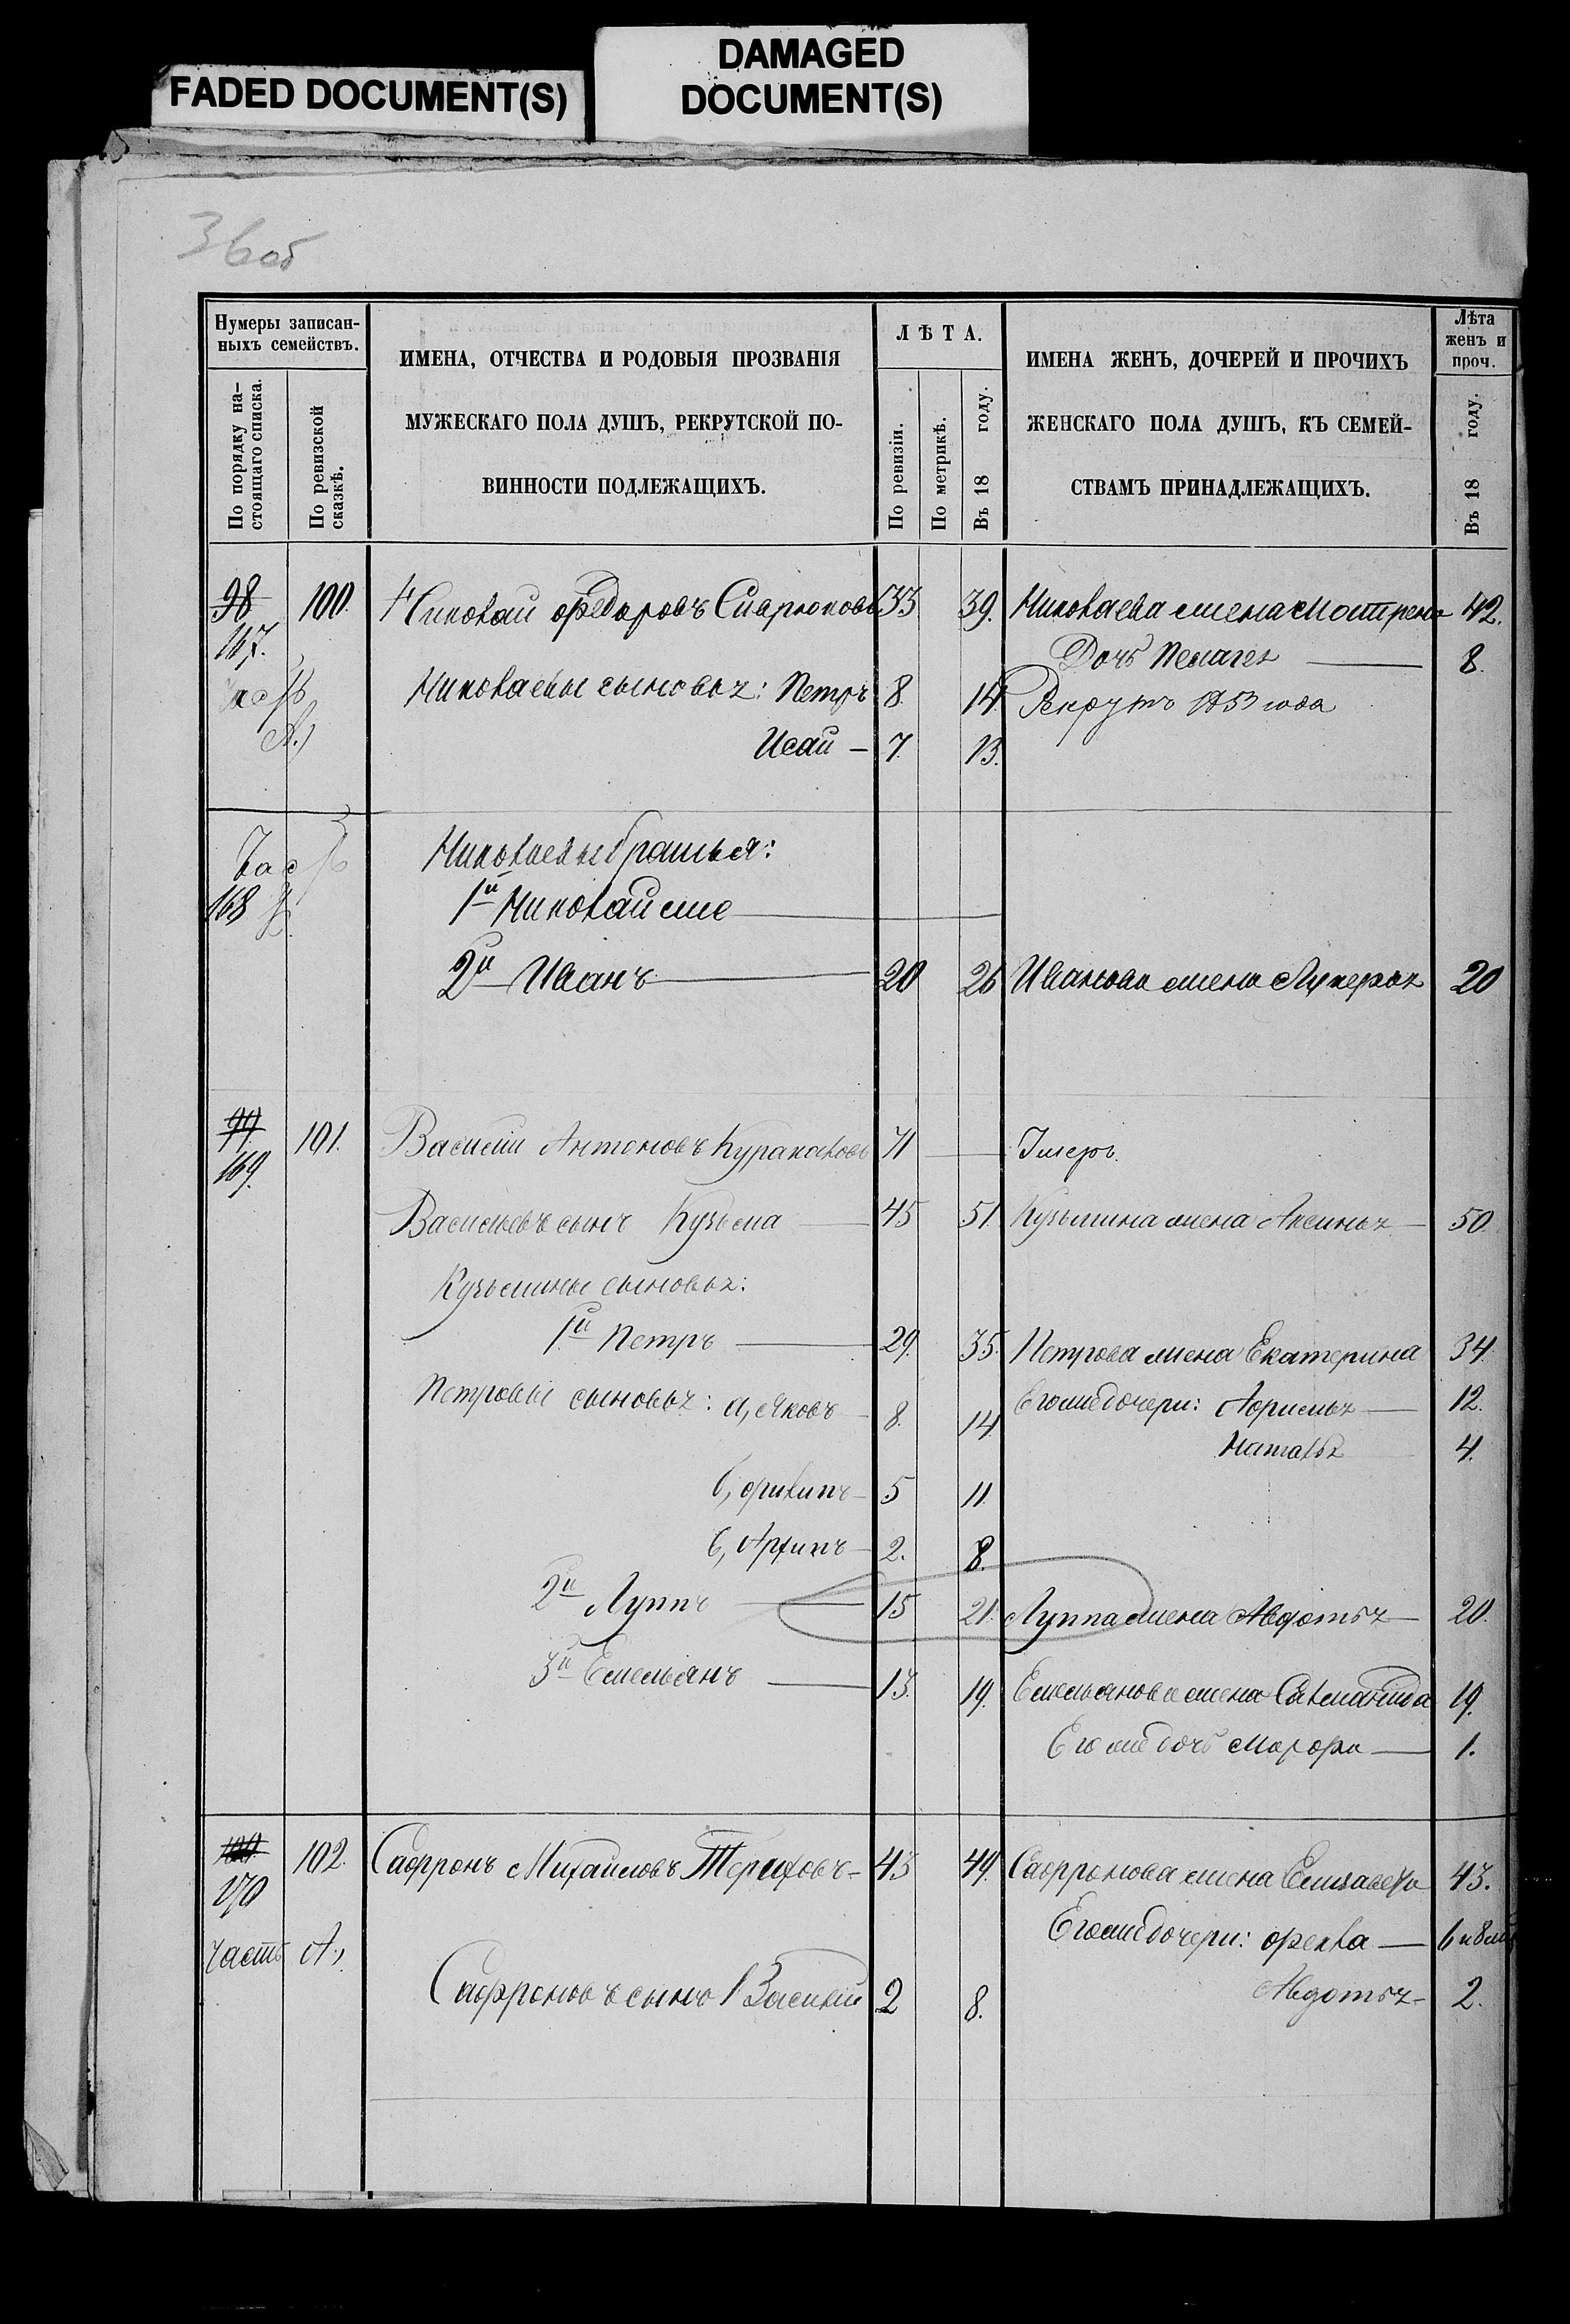 FADED DOCUMENT(S)
DAMAGED
DOCUMENT(S)
36об
Нумеры записан-
ныхъ семействъ.
По порядку на-
стоящаго списка.
По ревизской
сказкѣ.
ИМЕНА, ОТЧЕСТВА И РОДОВЫЯ ПРОЗВАНІЯ
МУЖЕСКАГО ПОЛА ДУШЪ, РЕКРУТСКОЙ ПО-
ВИННОСТИ ПОДЛЕЖАЩИХЪ.
ЛѢТА.
По ревизіи.
По метрикѣ.
Въ 18 году.
ИМЕНА ЖЕНЪ, ДОЧЕРЕЙ И ПРОЧИХЪ
ЖЕНСКАГО ПОЛА ДУШЪ, КЪ СЕМЕЙ-
СТВАМЪ ПРИНАДЛЕЖАЩИХЪ.
Лѣта
женъ и
проч.
Въ 18 году.
98 100. Николай Федоровъ 33 39. Николаева жена Мотрена 42.
167. Дочь Пелагея 8.
Николаевы сыновья: Петръ 8. 14 Рекрутъ 1853 года
А.) Исай 7. 13.
Николаевы братья:
168 1й Николай же
2й Иванъ 20 26 Иванова жена Лукерья 20
99. 101. Василий Антоновъ 71 Умеръ.
169.
Васильевъ сынъ Кузьма 45 51. Кузьмина жена Аксинья 50.
Кузьмины сыновья:
1й Петръ 29. 35. Петрова жена Екатерина 34.
Петровы сыновья: а, Яковъ 8. 14 Его же дочери: 12.
Наталья 4.
б, Филипъ 5 11
в, Архипъ 2. 8.
2й Луппъ 15 21. Луппа жена Авдотья 20.
3й Емельянъ 13. 19. Емельянова жена 19.
Его же дочь Марфа 1.
100 102. Сафронъ Михайловъ Териховъ 43 49. Сафронова жена Елизавета 43.
170
Его же дочери: Фекла
часть А.)
Сафроновъ сынъ Василий 2 8. Авдотья 2.